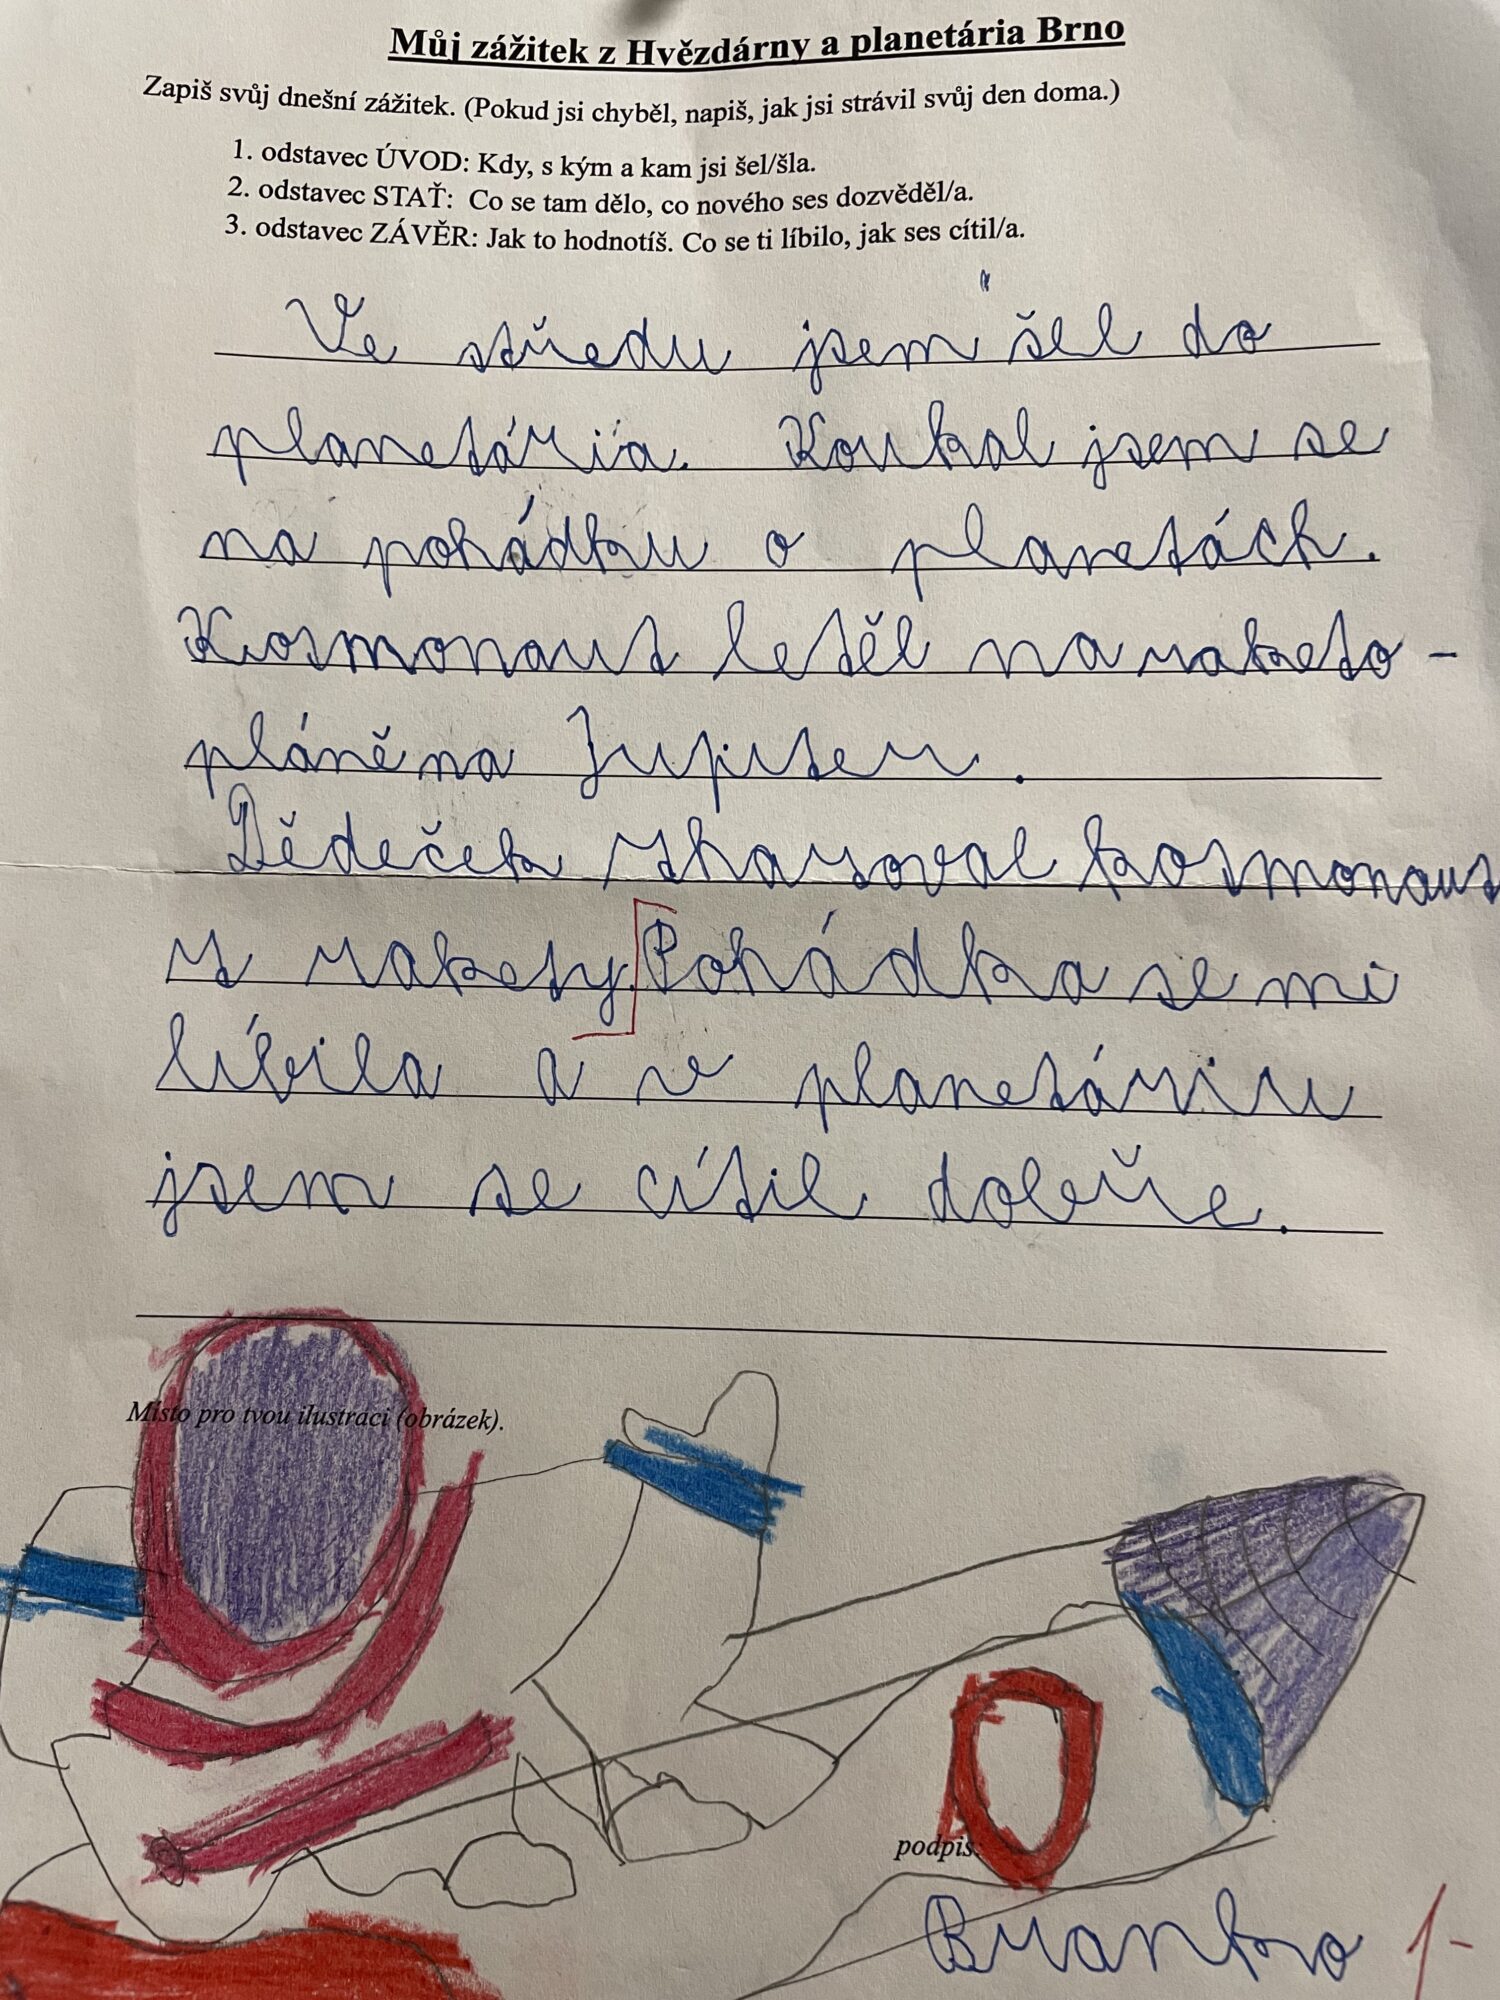 Můj zážitek z Hvězdárny a planetária Brno
Zapiš svůj dnešní zážitek. (Pokud jsi chyběl, napiš, jak jsi strávil svůj den doma.)
1. odstavec ÚVOD: Kdy, s kým a kam jsi šel/šla.
2. odstavec STAŤ: Co se tam dělo, co nového ses dozvěděl/a.
3. odstavec ZÁVĚR: Jak to hodnotíš. Co se ti líbilo, jak ses cítil/a.
Ve středu jsem šel do
planetária. Koukal jsem se
na pohádku o planetách.
Kosmonaut letěl na raketo-
pláně na Jupiter.
Dědeček zkasoval kosmonaut
z rakety. Pohádka se mi
líbila a v planetáriu
jsem se cítil dobře.
Místo pro tvou ilustraci (obrázek).
podpis:
Branko 1-